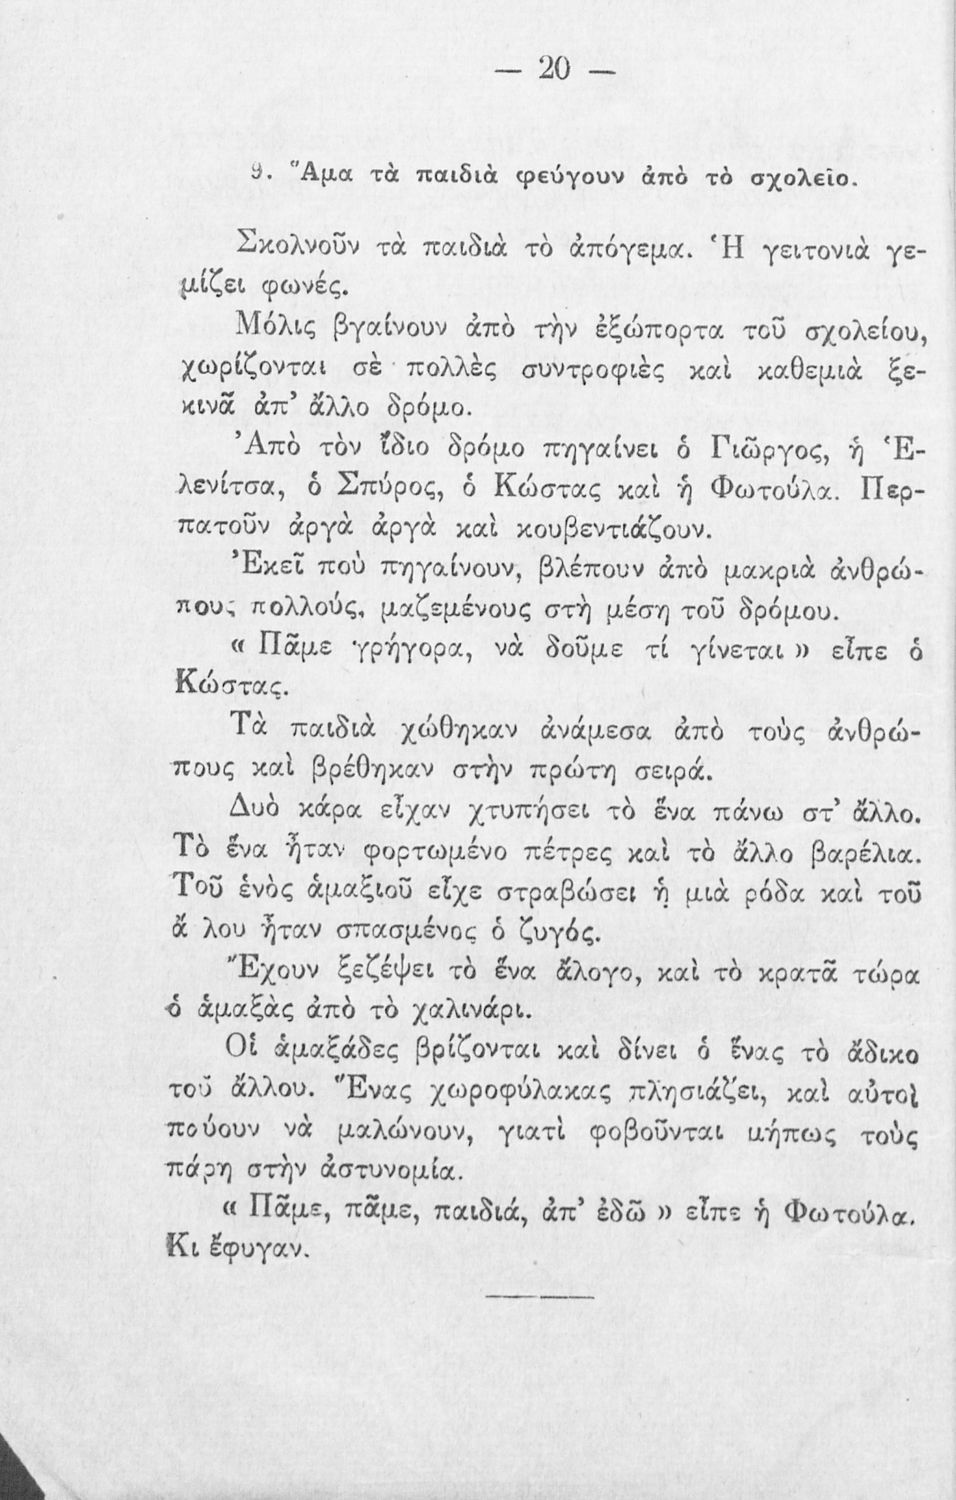 — 20 —
9. Ἅμα τὰ παιδιὰ φεύγουν ἀπὸ τὸ σχολεῖο.
Σκολνοῦν τὰ παιδιὰ τὸ ἀπόγεμα. Ἡ γειτονιὰ γε-
μίζει φωνές.
Μόλις βγαίνουν ἀπὸ τὴν ἐξώπορτα τοῦ σχολείου,
χωρίζονται σὲ πολλὲς συντροφιὲς καὶ καθεμιὰ ξε-
κινᾶ ἀπ’ ἄλλο δρόμο.
Ἀπὸ τὸν ἴδιο δρόμο πηγαίνει ὁ Γιῶργος, ἡ Ἑ-
λενίτσα, ὁ Σπύρος, ὁ Κώστας καὶ ἡ Φωτούλα. Περ-
πατοῦν ἀργὰ ἀργὰ καὶ κουβεντιάζουν.
Ἐκεῖ ποὺ πηγαίνουν, βλέπουν ἀπὸ μακριὰ ἀνθρώ-
πους πολλούς, μαζεμένους στὴ μέση τοῦ δρόμου.
« Πᾶμε γρήγορα, νὰ δοῦμε τί γίνεται » εἶπε ὁ
Κώστας.
Τὰ παιδιὰ χώθηκαν ἀνάμεσα ἀπὸ τοὺς ἀνθρώ-
πους καὶ βρέθηκαν στὴν πρώτη σειρά.
Δυὸ κάρα εἶχαν χτυπήσει τὸ ἕνα πάνω στ’ ἄλλο.
Τὸ ἕνα ἦταν φορτωμένο πέτρες καὶ τὸ ἄλλο βαρέλια.
Τοῦ ἑνὸς ἁμαξιοῦ εἶχε στραβώσει ἡ μιὰ ρόδα καὶ τοῦ
ἄ λου ἦταν σπασμένος ὁ ζυγός.
Ἔχουν ξεζέψει τὸ ἕνα ἄλογο, καὶ τὸ κρατᾶ τώρα
ὁ ἁμαξὰς ἀπὸ τὸ χαλινάρι.
Οἱ ἁμαξάδες βρίζονται καὶ δίνει ὁ ἕνας τὸ ἄδικο
τοῦ ἄλλου. Ἕνας χωροφύλακας πλησιάζει, καὶ αὐτοὶ
παύουν νὰ μαλώνουν, γιατὶ φοβοῦνται μήπως τοὺς
πάρη στὴν ἀστυνομία.
« Πᾶμε, πᾶμε, παιδιά, ἀπ’ ἐδῶ » εἶπε ἡ Φωτούλα.
Κι ἔφυγαν.